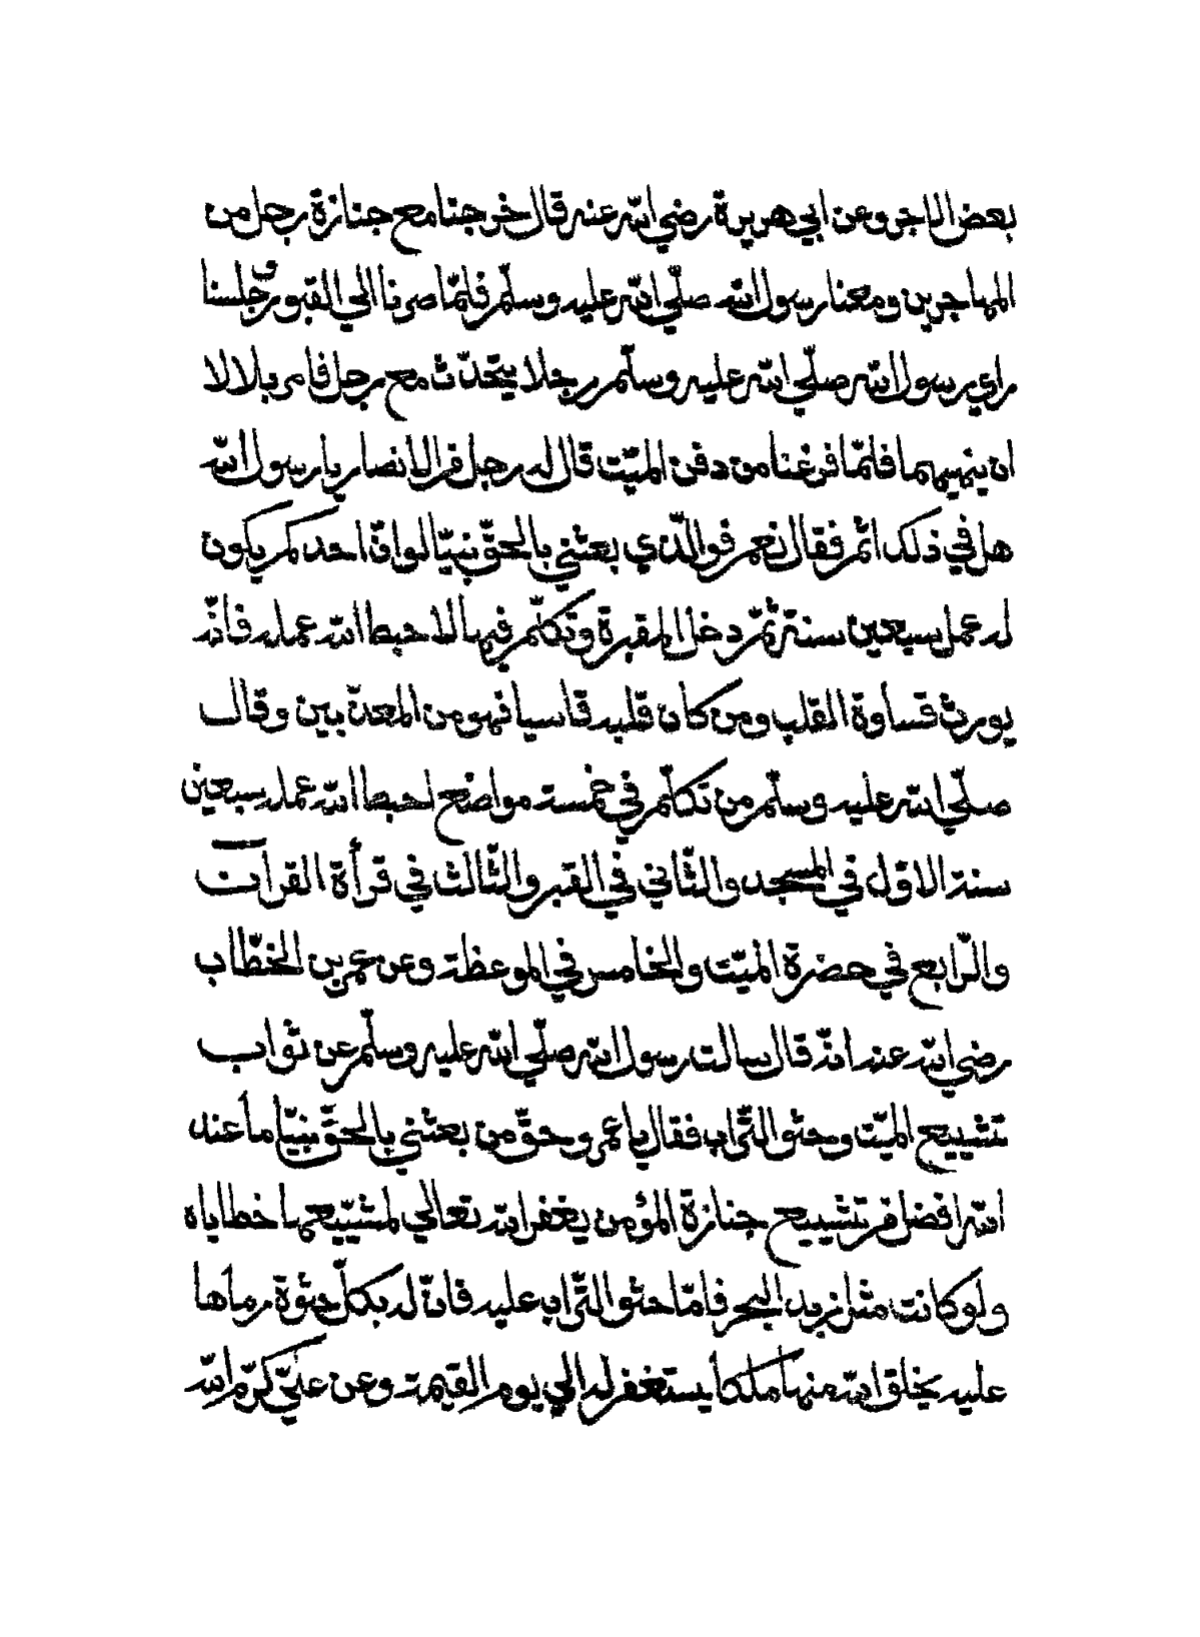 بعض الاجر وعن ابي هريرة رضي الله عنه قال خرجنا مع جنازة رجل من
المهاجرين ومعنا رسول الله صلّي الله عليه وسلّم فلمّا صرنا الي القبور جلسنا
راي رسول الله صلّي الله عليه وسلّم رجلا يتحدّث مع رجل فامر بلالا
ان ينهيهما فلمّا فرغنا من دفن الميّت قال له رجل من الانصار يا رسول الله
هل في ذلك اثم فقال نعم فوالّذي بعثني بالحقّ نبيّا لو انّ احدكم يكون
له عمل سبعين سنة ثمّ دخل المقبرة وتكلّم فيها الا احبط الله عمله فانّه
يورث قساوة القلب ومن كان قلبه قاسيا فهو من المعذّبين وقال
صلّي الله عليه وسلّم من تكلّم في خمسة مواضع احبط الله عمله سبعين
سنة الاوّل في المسجد والثّاني في القبر والثّالث في قرأة القرآن
والرّابع في حضرة الميّت والخامس في الموعظة وعن عمر بن الخطّاب
رضي الله عنه انّه قال سالت رسول الله صلّي الله عليه وسلّم عن ثواب
تشييع الميّت وحثو التّراب فقال يا عمر وحقّ من بعثني بالحقّ نبيّا ما عند
الله افضل من تشييع جنازة المؤمن يغفر الله تعالي لمشيّيعها خطاياه
ولو كانت مثل زبد البحر فامّا حثو التّراب عليه فانّ له بكلّ حثوة رماها
عليه يخلق الله منها ملكا يستغفر له الي يوم القيمة وعن عليّ كرّم الله